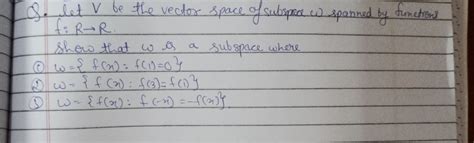 Q. Let V be the vector space of subspace ω spanned by functions
f: R→R.
Show that ω is a subspace where
① ω = { f(x) : f(1)=0 }
② ω = { f(x) : f(3)=f(1) }
③ ω = { f(x) : f(-x) = -f(x) }